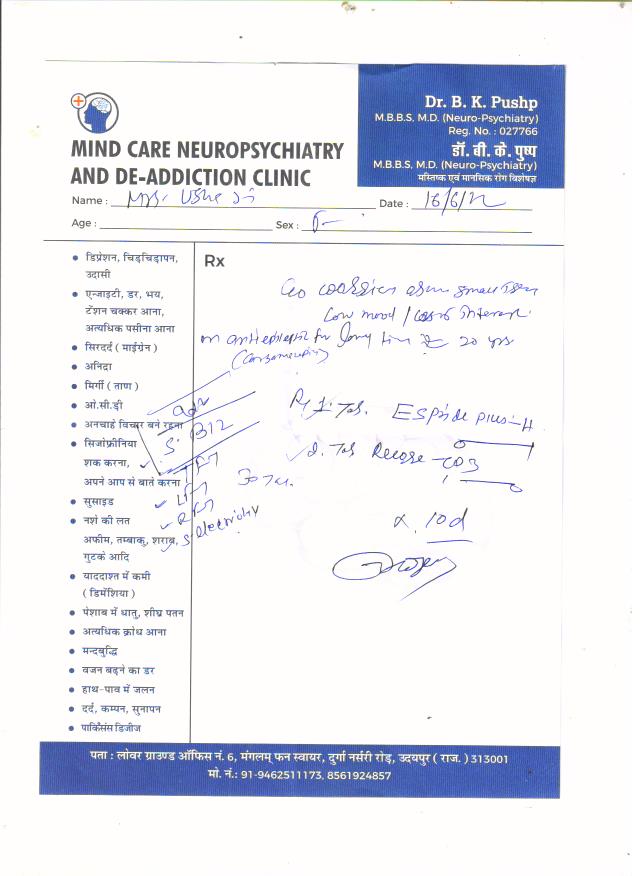 MIND CARE NEUROPSYCHIATRY
AND DE-ADDICTION CLINIC
Dr. B. K. Pushp
M.B.B.S, M.D. (Neuro-Psychiatry)
Reg. No. : 027766
डॉ. बी. के. पुष्प
M.B.B.S, M.D. (Neuro-Psychiatry)
मस्तिष्क एवं मानसिक रोग विशेषज्ञ
Name : Mrs. Date : 16/6/22
Age : Sex : F
Rx
• डिप्रेशन, चिड़चिड़ापन,
उदासी
• एन्जाइटी, डर, भय,
टेंशन चक्कर आना,
अत्यधिक पसीना आना
• सिरदर्द (माईग्रेन)
• अनिद्रा
• मिर्गी ( ताण )
• ओ.सी.डी
• अनचाहे विचार बने रहना
• सिजोफ्रीनिया
शक करना,
अपने आप से बातें करना
• सुसाइड
• नशे की लत
अफीम, तम्बाकू, शराब,
गुटके आदि
• याददाश्त में कमी
( डिमेंशिया )
• पेशाब में धातु, शीघ्र पतन
• अत्यधिक क्रोध आना
• मन्दबुद्धि
• वजन बढ़ने का डर
• हाथ-पाव में जलन
• दर्द, कम्पन, सुनापन
• पार्किसंस डिजीज
Low mood / interest
on antiepileptic for long time 20 yrs
adv
S. B12
LFT
RFT
1. Tab. Espride Plus-H
2. Tab
x 10d
पता : लोवर ग्राउण्ड ऑफिस नं. 6, मंगलम् फन स्क्वायर, दुर्गा नर्सरी रोड़, उदयपुर ( राज. ) 313001
मो. नं.: 91-9462511173, 8561924857